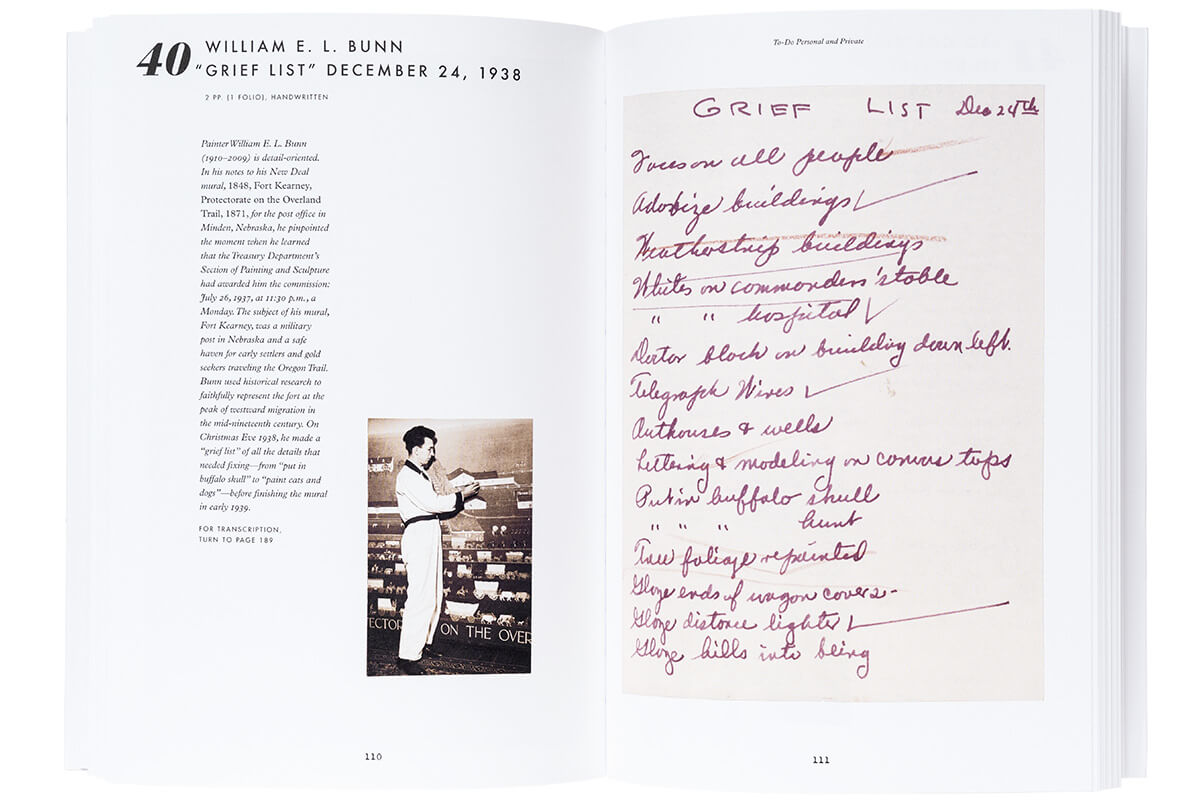 40
WILLIAM E. L. BUNN
"GRIEF LIST" DECEMBER 24, 1938
2 PP. (1 FOLIO), HANDWRITTEN
Painter William E. L. Bunn
(1910–2009) is detail-oriented.
In his notes to his New Deal
mural, 1848, Fort Kearney,
Protectorate on the Overland
Trail, 1871, for the post office in
Minden, Nebraska, he pinpointed
the moment when he learned
that the Treasury Department's
Section of Painting and Sculpture
had awarded him the commission:
July 26, 1937, at 11:30 p.m., a
Monday. The subject of his mural,
Fort Kearney, was a military
post in Nebraska and a safe
haven for early settlers and gold
seekers traveling the Oregon Trail.
Bunn used historical research to
faithfully represent the fort at the
peak of westward migration in
the mid-nineteenth century. On
Christmas Eve 1938, he made a
"grief list" of all the details that
needed fixing—from "put in
buffalo skull" to "paint cats and
dogs"—before finishing the mural
in early 1939.
FOR TRANSCRIPTION,
TURN TO PAGE 189
TECTOR
ON THE OVER
110
To-Do Personal and Private
GRIEF LIST Dec 24th
Faces on all people
Adobize buildings
Weatherstrip buildings
Whites on commanders' stable
" " hospital
Doctor block on building down left.
Telegraph Wires
Outhouses & wells
Lettering & modeling on canvas tops
Put in buffalo skull
" " " hunt
Tree foliage repainted
Glaze ends of wagon covers-
Glaze distance lighter
Glaze hills into being
111